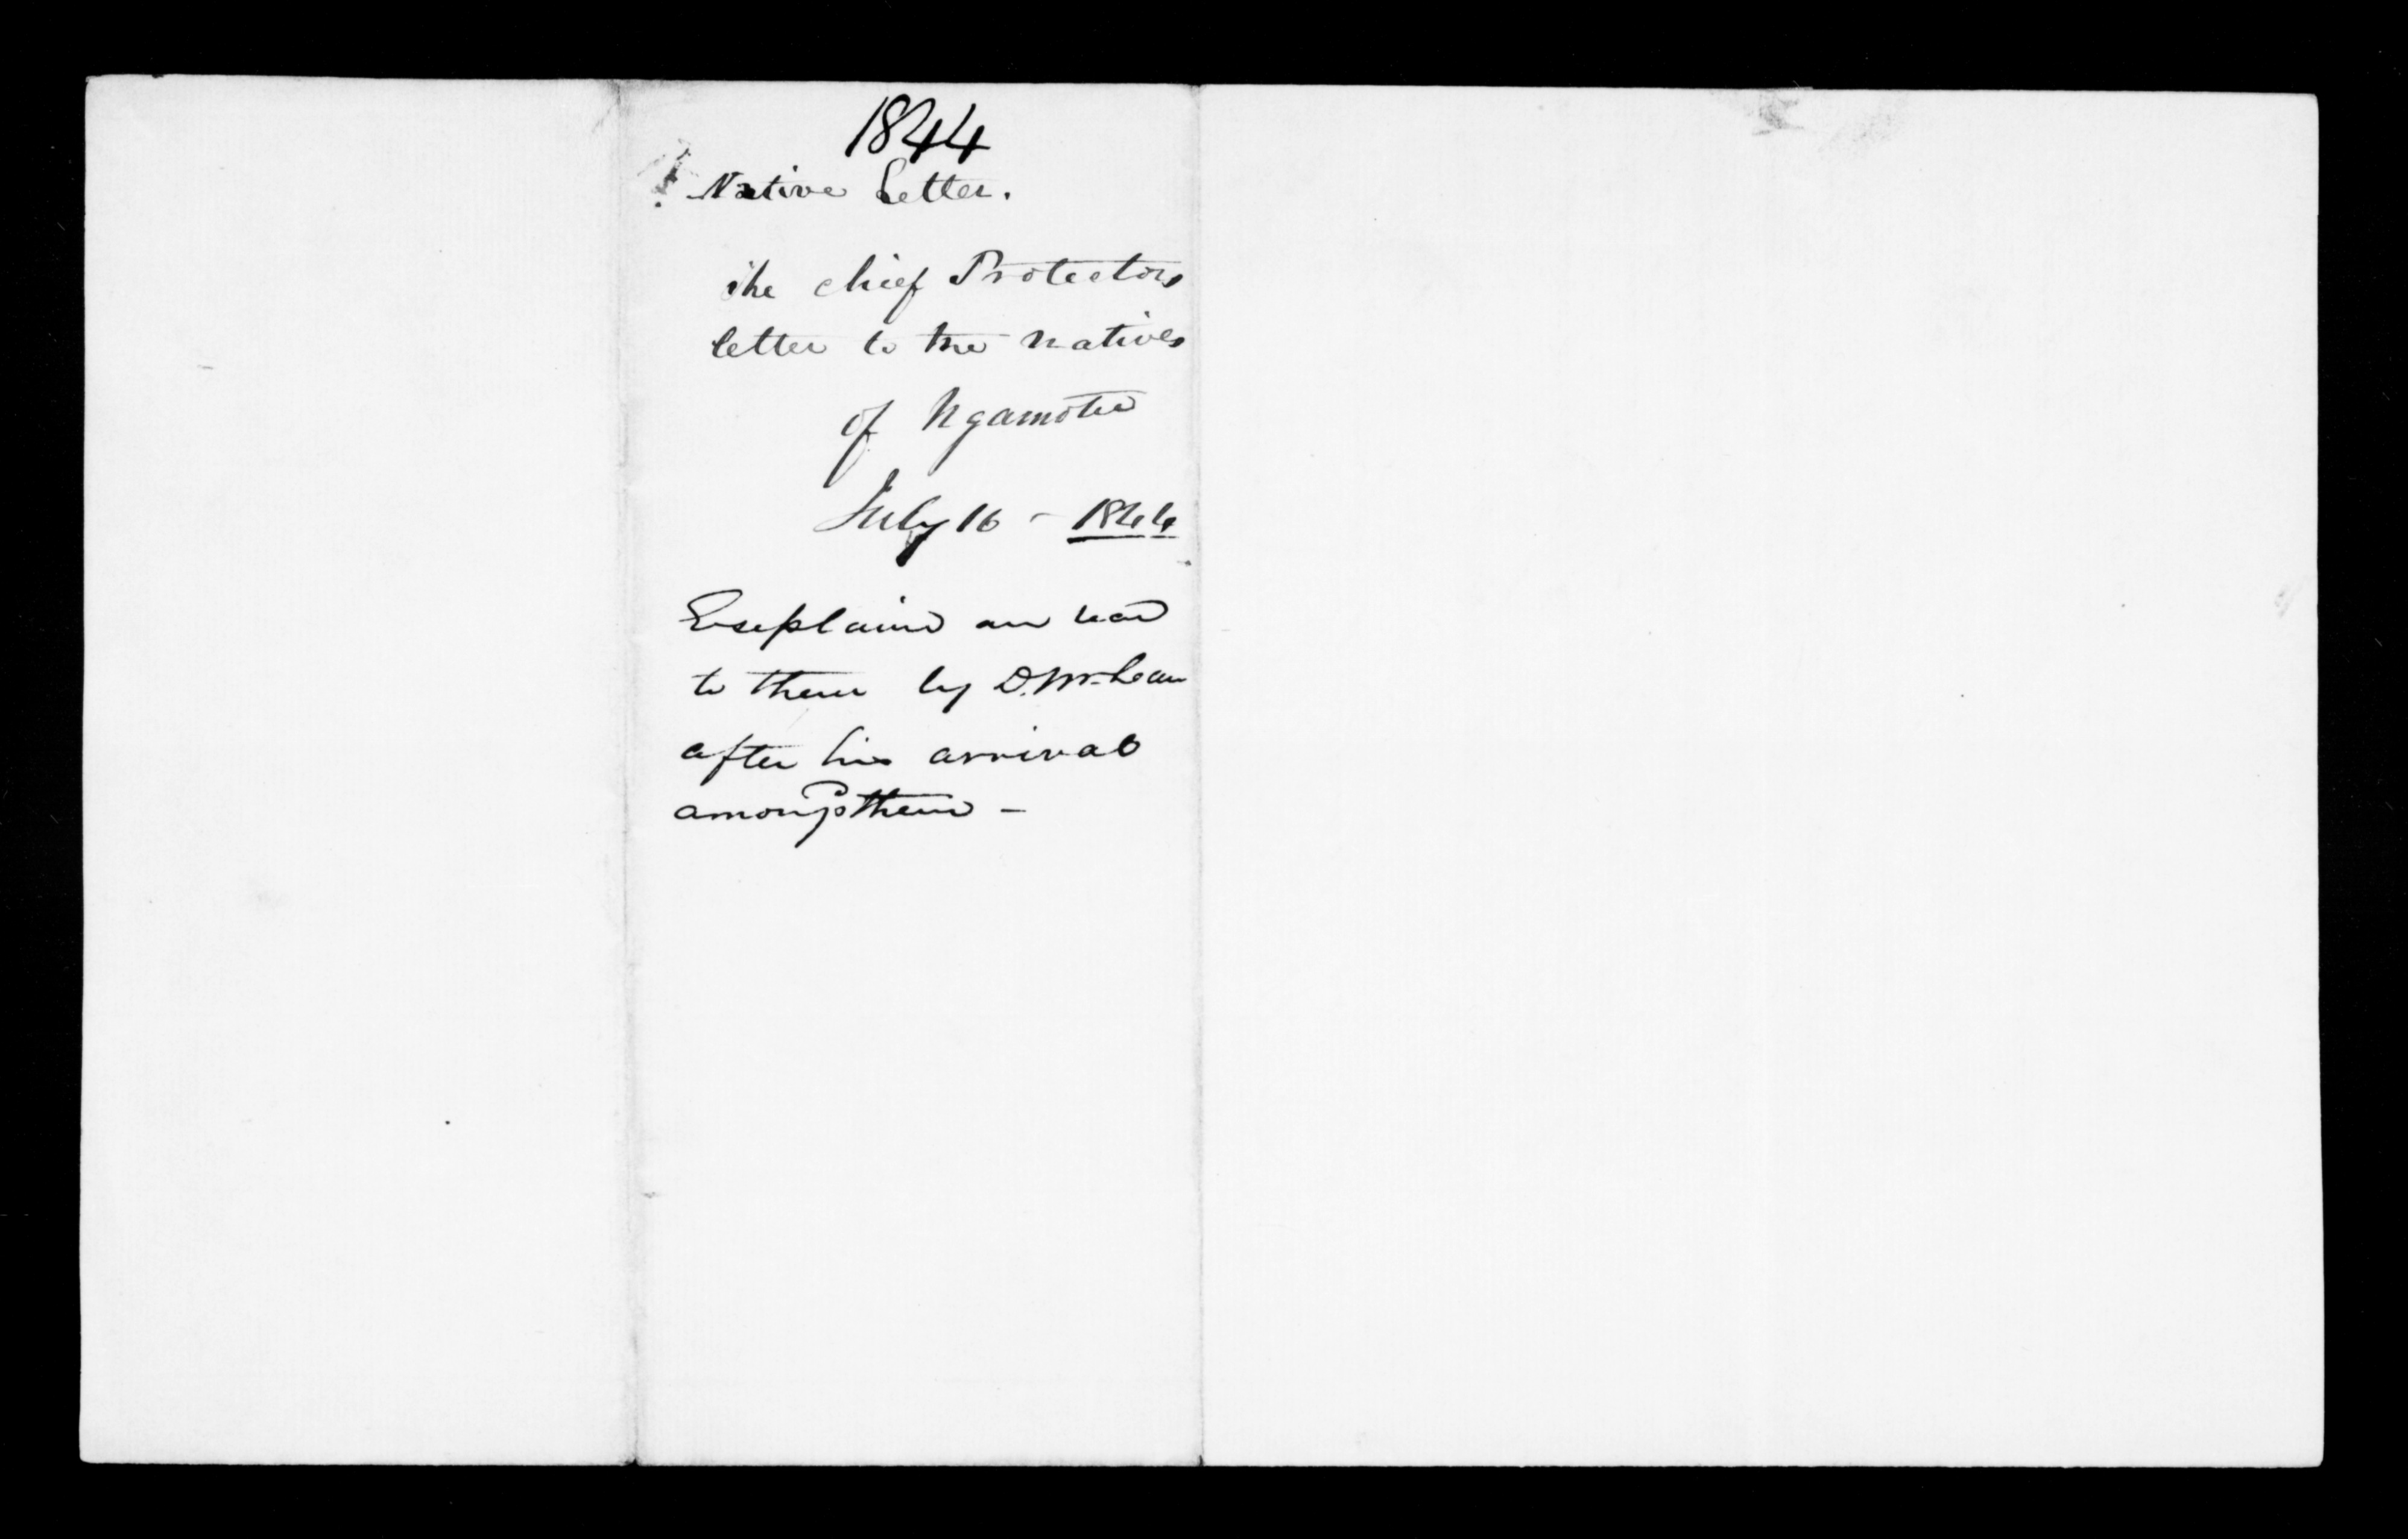 1844
Native Letter.
The chief Protectors
letter to the natives
of Ngamotu
July 16 - 1844
Explaind an read
to them by D. McLean
after his arrival
amongst them -